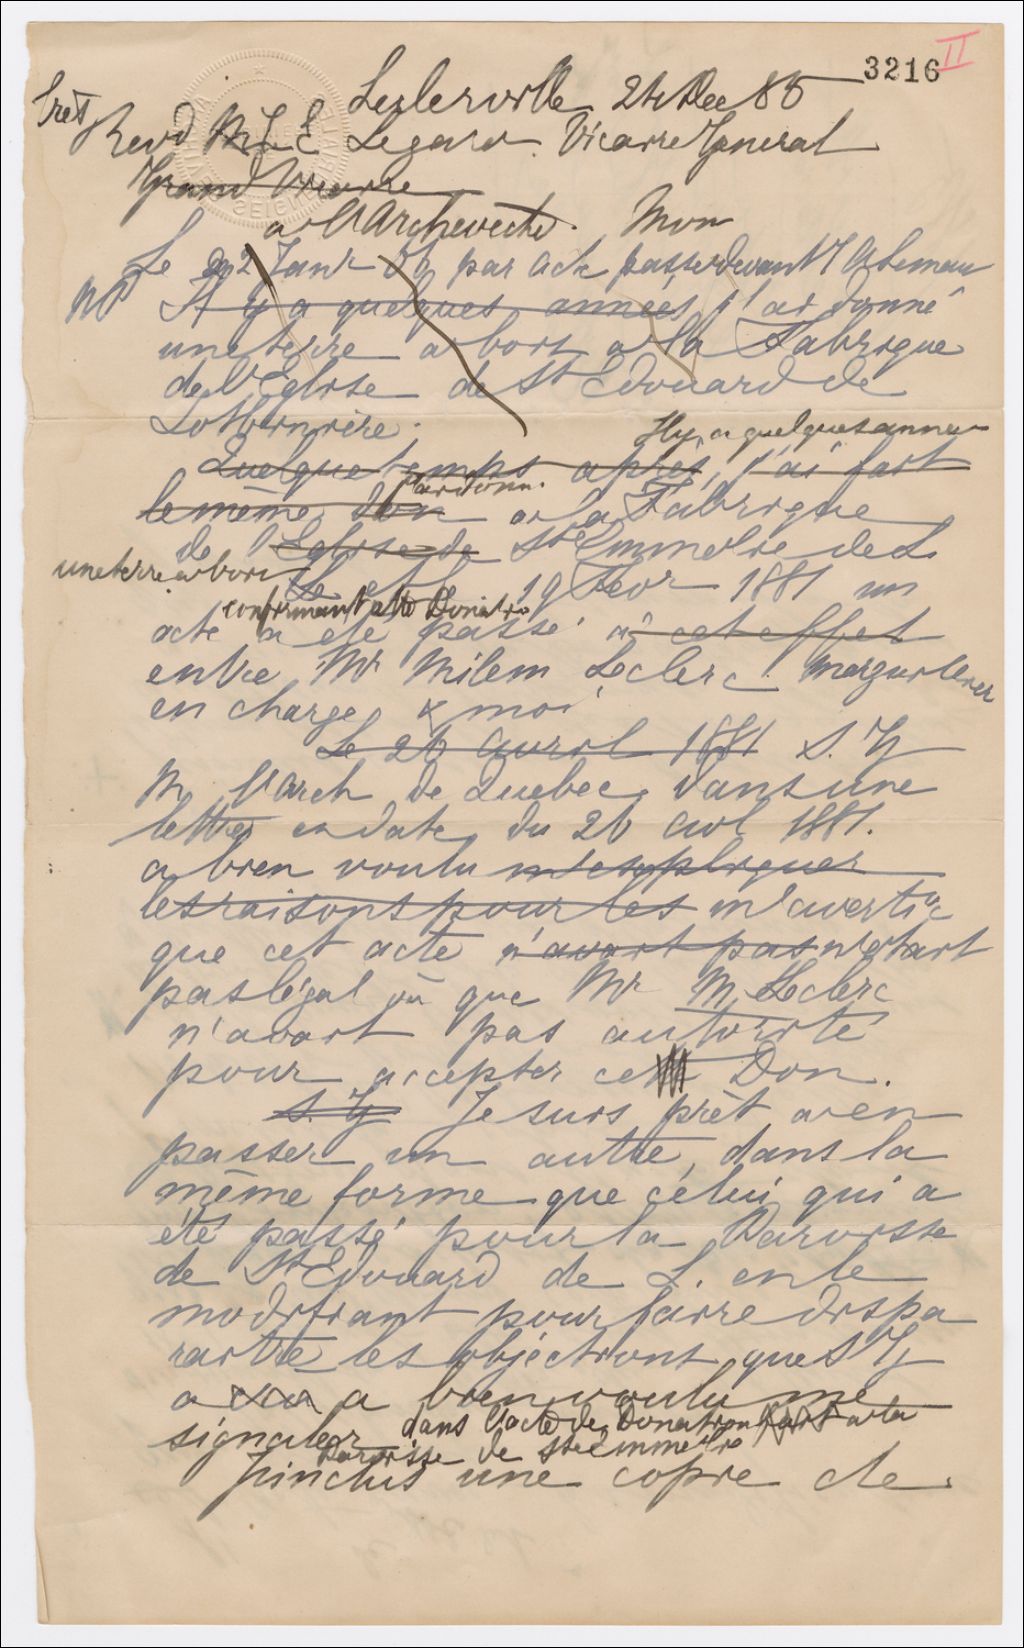 3216 II
Leclerville 24 Dec 85
Très Revd M. C. E Legaré. Vicaire General
Grand Vicaire
à l'Archeveche. Mon
Le 22 Janr 80 par acte passé devant
Il y a quelques années j'ai donné
une terre à bois à la Fabrique
de l'Eglise de St Edouard de
Lotbinière.
Il y a quelques années
Quelque temps après, j'ai fait
j'ai donné
le même don à la Fabrique
de l'Eglise de Ste Emmelie de L.
une terre à bois
Le 19 Fevr 1881 un
confirmant cette Donation
acte a été passé à cet effet
entre Mr Milem Leclerc Marguillier
en charge & moi
Le 26 avril 1881 S. G
M. l'Arch de Quebec, dans une
lettre en date du 26 Avl 1881.
a bien voulu m'expliquer
les raisons pour les m'avertir
que cet acte n'avait pas n'etait
pas légal vû que Mr M. Leclerc
n'avait pas autorité
pour accepter ce Don.
S. G Je suis prêt à en
passer un autre, dans la
même forme que celui qui a
été passé pour la Paroisse
de St Edouard de L. en le
modifiant pour faire dispa
raitre les objections que S G
a a bien voulu me
signaler dans l'acte de Donation fait à la
Paroisse de Ste Emmelie
J'inclus une copie de